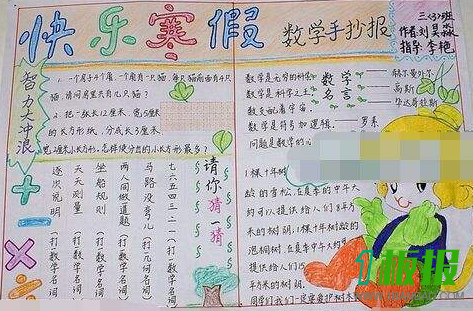 快乐寒假
数学手抄报
三(3)班
指导:李艳
智力大冲浪
1.一个房子4个角,一个角有一只猫,每只猫前面有4只
猫,请问房里共有几只猫?
2.把一张长12厘米,宽5厘米
的长方形纸,分成长3厘米
宽2厘米小长方形,怎样使分出的小长方形最多?
数学名言
数学是无穷的科学
赫尔曼外尔
数学是科学之王
高斯
数支配着宇宙
毕达哥拉斯
数学是符号加逻辑
罗素
问题是数学的
请你猜一猜
七六五四三二一(打数学名词)
马路没弯儿(打几何名词)
两人同做道题(打数学名词)
坐船规则(打数学名词)
天天测量(打数学名词)
逐次说明(打数学名词)
1棵十年树
龄的雪松,在夏季的中午大
约可以提供给人们8平方米
的树阴,1棵十年树龄的
泡桐树,在夏季中午大约
提供给人们
平方米的树阴,
同学们我们一定要爱护树木
板报